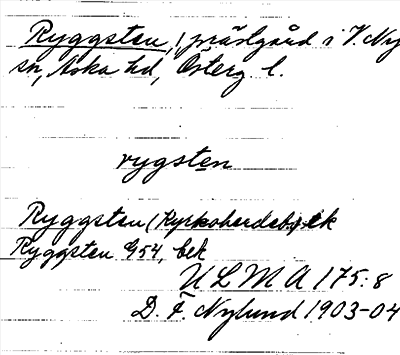 Ryggsten, prästgård i V. Ny
sn, Aska hd, Österg l.
rygsten
Ryggsten (Kyrkoherdeb, ek
Ryggsten G54, bek
ULMA 175:8
D. F. Nylund 1903-04